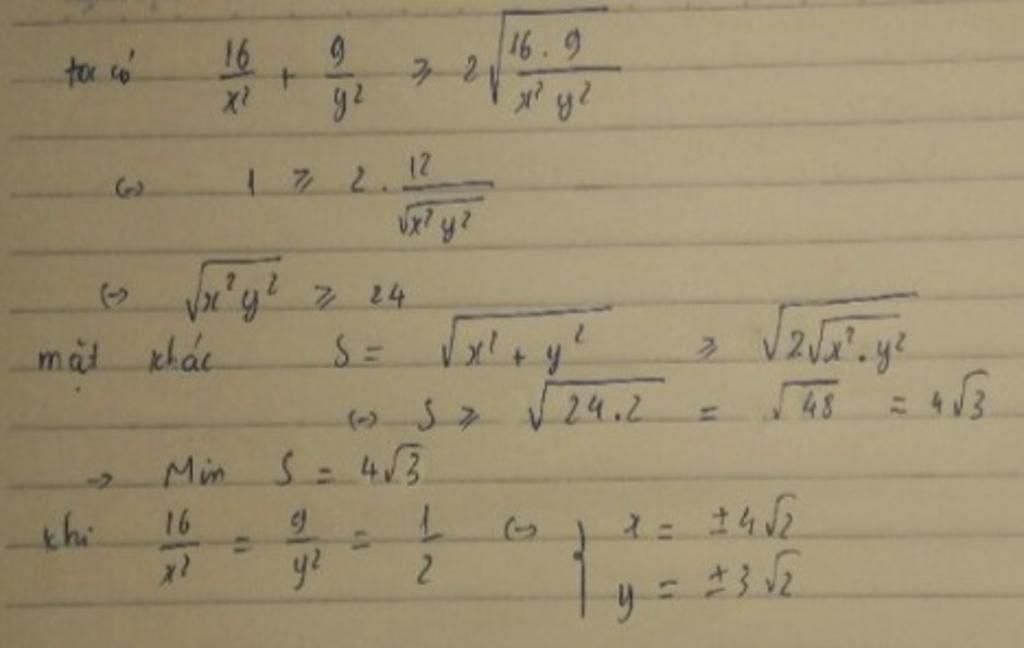 ta có 16/x² + 9/y² ⩾ 2√(16 . 9/x² y²)
(=) 1 ⩾ 2 . 12/√(x² y²)
(=) √(x² y²) ⩾ 24
mặt khác S = √(x² + y²) ⩾ √(2√(x² . y²))
(=) S ⩾ √(24 . 2) = √48 = 4√3
→ Min S = 4√3
khi 16/x² = 9/y² = 1/2 (=) { x = ±4√2
y = ±3√2